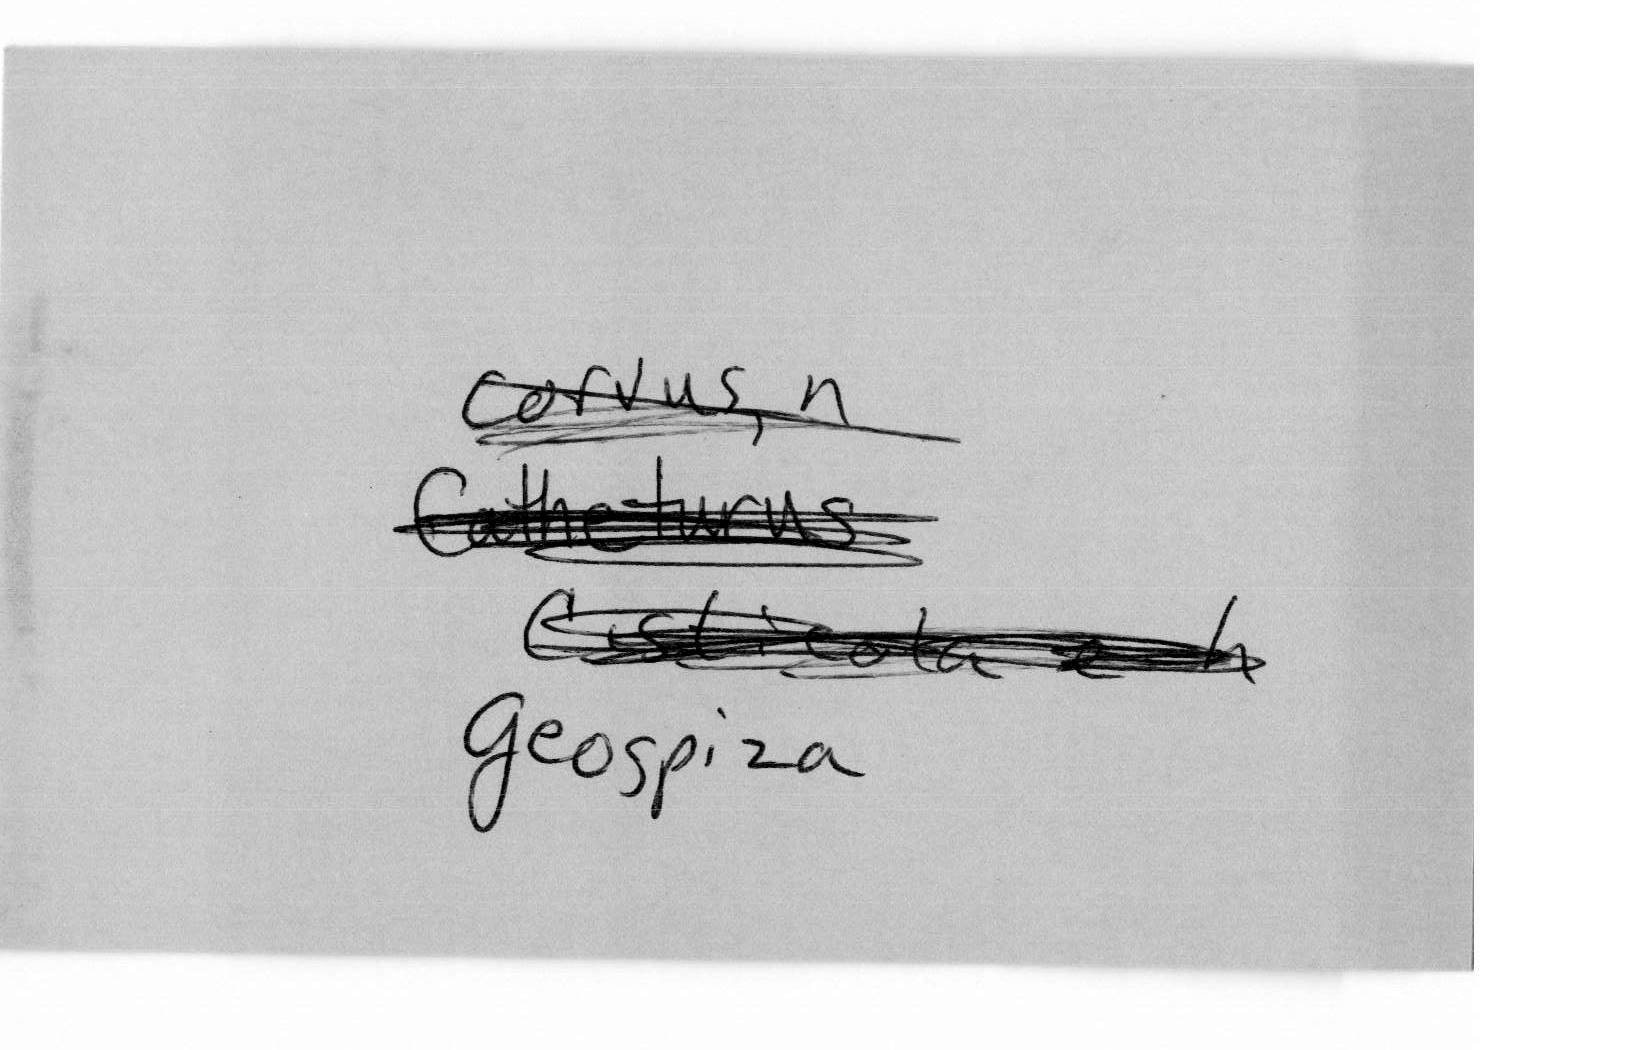 corvus, n
Catheturus
Cisticola e h
Geospiza